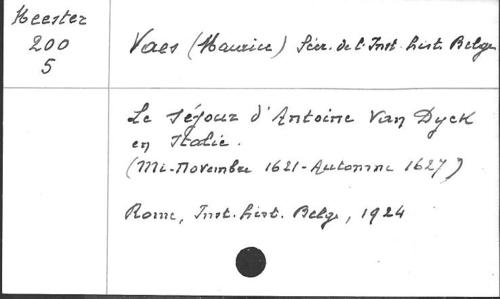 Meester
200
5
Vaes (Maurice) Secr. de l'Inst. hist. Belge
Le séjour d'Antoine Van Dyck
en Italie.
(Mi-Novembre 1621-Automne 1627)
Rome, Inst. hist. Belge, 1924